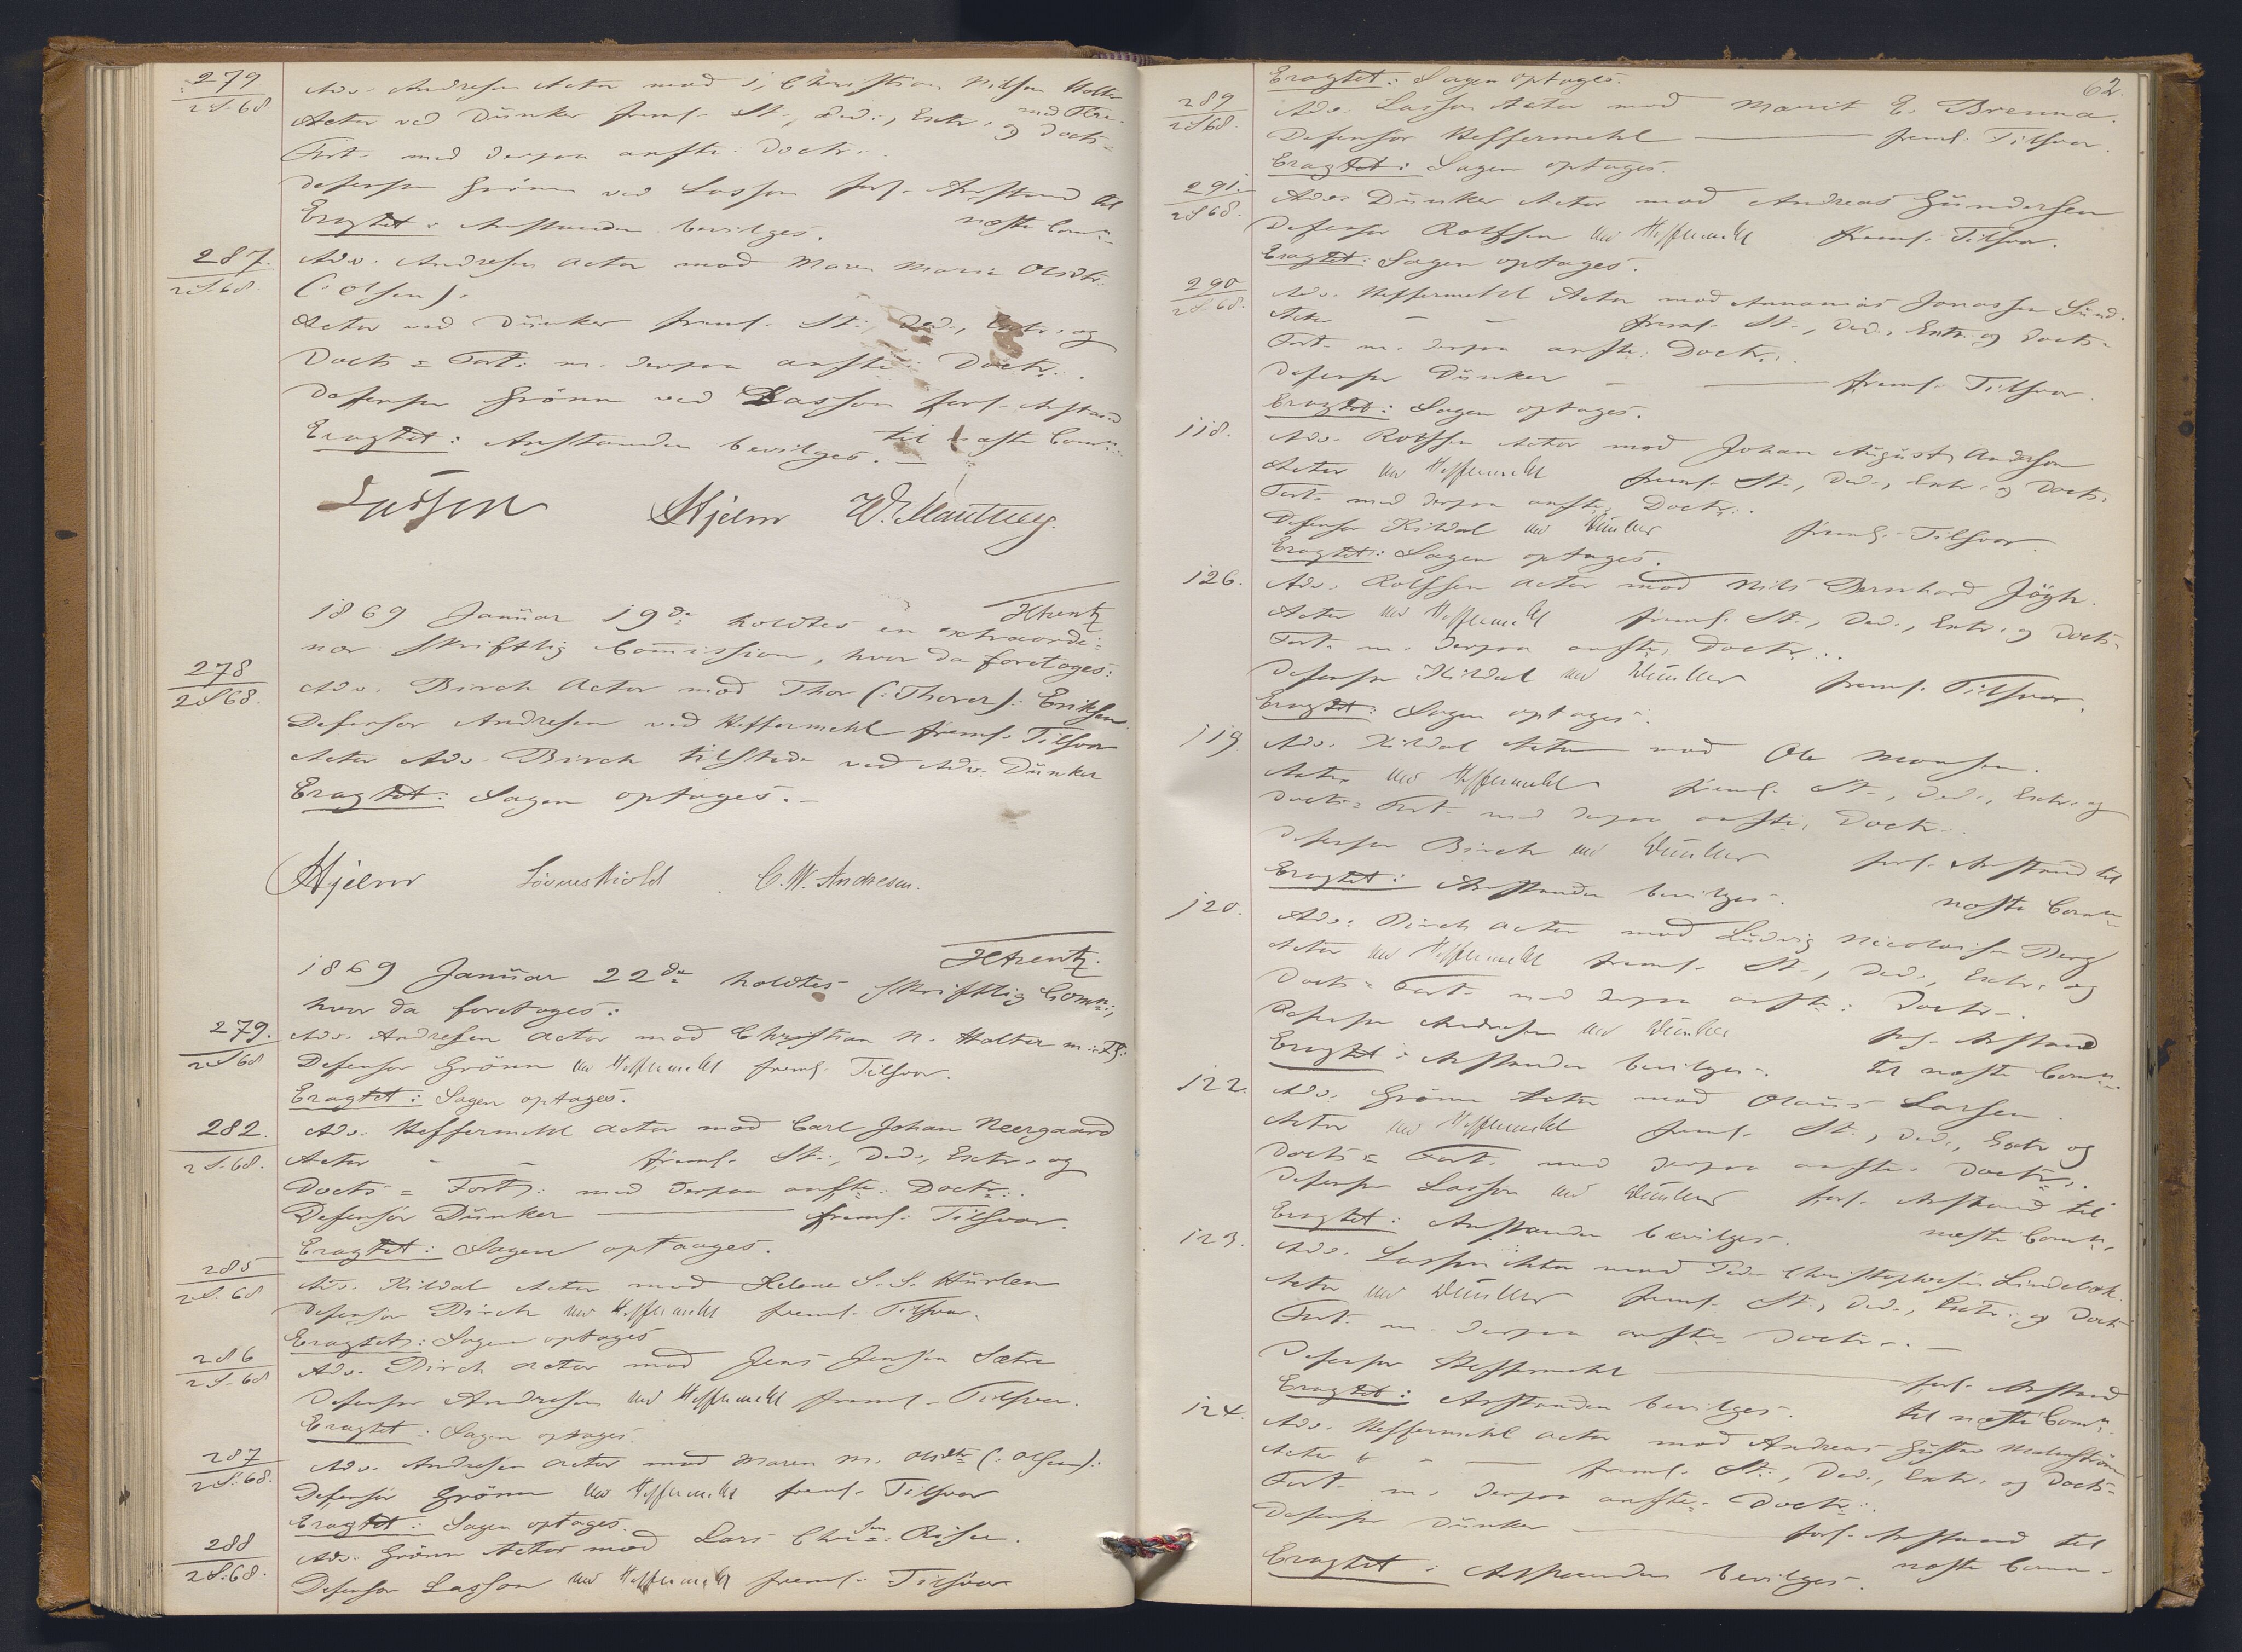 279
2 S. 68
Adv. Andresen Actor mod 1, Christian Nilsen Holter
Actor ved Dünker freml. St., Ded., Extr. og Docts-
Fort. med derpaa anfte. Doctr.
Defensor Grönn ved Lasson forl. Anstand til
næste Comn.
Eragtet: Anstanden bevilges.
287.
2 S. 68.
Adv. Andresen Actor mod Maren Marie Olsdtr.
(: Olsen).
Actor ved Dünker freml. St., Ded., Extr. og
Docts = Fort: m. derpaa anfte: Doctr.
Defensor Grönn ved Lasson forl. Anstand
til næste Comn.
Eragtet: Anstanden bevilges. –
Lasson Hjelm W. Manthey.
1869 Januar 19de holdtes en extraordi=
nær skriftlig Commission, hvor da foretoges:
278
2 S 68.
Adv. Birch Actor mod Thor (: Thorer): Eriksen.
Defensor Andresen ved Heffermehl freml. Tilsvar
Actor Adv. Birch tilstede ved Adv. Dünker
Eragtet: Sagen optages. –
Hjelm Løvenskiold C. W. Andresen.
1869 Januar 22de holdtes skriftlig Comn.,
hvor da foretoges:
279.
2 S 68
Adv. Andresen Actor mod Christian N. Holter m: Fl:
Defensor Grönn ved Heffermehl freml. Tilsvar.
Eragtet: Sagen optages.
282.
2 S. 68.
Adv. Heffermehl Actor mod Carl Johan Neergaard
Actor – – freml. St., Ded., Extr. og
Docts = Fort: med derpaa anfte: Doctr.
Defensor Dünker — freml. Tilsvar.
Eragtet: Sagen optages.
285
2 S. 68
Adv. Kildal Actor mod Helene S. S. Hürlen
Defensor Birch ved Heffermehl freml. Tilsvar.
Eragtet: Sagen optages
286
2 S. 68
Adv. Birch Actor mod Jens Jensen Sætre
Defensor Andresen ved Heffermehl freml. Tilsvar.
Eragtet: Sagen optages.
287
2 S. 68.
Adv. Andresen Actor mod Maren M. Olsdtr (: Olsen):
Defensor Grönn ved Heffermehl freml. Tilsvar
Eragtet: Sagen optages.
288
2 S. 68.
Adv. Grönn Actor mod Lars Chr.sen Riser.
Defensor Lasson ved Heffermehl freml. Tilsvar
62.
Eragtet: Sagen optages.
289
2 S 68.
Adv. Lasson Actor mod Marit E. Brenna.
Defensor Heffermehl — freml. Tilsvar.
Eragtet: Sagen optages.
291.
2 S 68.
Adv. Dünker Actor mod Andreas Gundersen
Defensor Rolfsen ved Heffermehl freml. Tilsvar.
Eragtet: Sagen optages.
290
2 S. 68.
Adv. Heffermehl Actor mod Annanias Jonassen Lund.
Actor – – freml. St., Ded., Extr. og Docts-
Fort. m. derpaa anfte: Doctr.
Defensor Dünker — freml. Tilsvar.
Eragtet: Sagen optages.
118.
Adv. Rolfsen Actor mod Johan August Anderson
Actor ved Heffermehl freml. St., Ded., Extr. og Docts-
Fort. med derpaa anfte. Doctr.
Defensor Kildal ved Dünker freml. Tilsvar.
Eragtet: Sagen optages.
126.
Adv. Rolfsen Actor mod Nils Bernhard
Actor ved Heffermehl freml. St., Ded., Extr. og Docts-
Fort. m. derpaa anfte. Doctr.
Defensor Kildal ved Dünker freml. Tilsvar.
Eragtet: Sagen optages.
119.
Adv. Kildal Actor mod Ole Monsen.
Actor ved Heffermehl freml. St., Ded., Extr. og
Docts = Fort. med derpaa anfte. Doctr.
Defensor Birch ved Dünker forl. Anstand til
næste Comn.
Eragtet: Anstanden bevilges.
120.
Adv. Birch Actor mod Ludvig Nicolaisen Berg
Actor ved Heffermehl freml. St., Ded., Extr. og
Docts = Fort. med derpaa anfte: Doctr.
Defensor Andresen ved Dünker forl. Anstand
til næste Comn.
Eragtet: Anstanden bevilges.
122.
Adv. Grönn Actor mod Olaus Larsen.
Actor ved Heffermehl freml. St., Ded., Extr. og
Docts = Fort. med derpaa anfte. Doctr.
Defensor Lasson ved Dünker forl. Anstand til
næste Comn.
Eragtet: Anstanden bevilges.
123.
Adv. Lasson Actor mod Peder Christophersen Lindebæk.
Actor ved Dünker freml. St., Ded., Extr. og Docts
Fort. m. derpaa anfte Doctr. –
Defensor Heffermehl — forl. Anstand
til næste Comn.
Eragtet: Anstanden bevilges.
124.
Adv. Heffermehl Actor mod Andreas Gustav Malmström
Actor – – freml. St., Ded., Extr. og Docts-
Fort. m. derpaa anfte. Doctr.
Defensor Dünker — forl. Anstand til
næste Comn.
Eragtet: Anstanden bevilges.